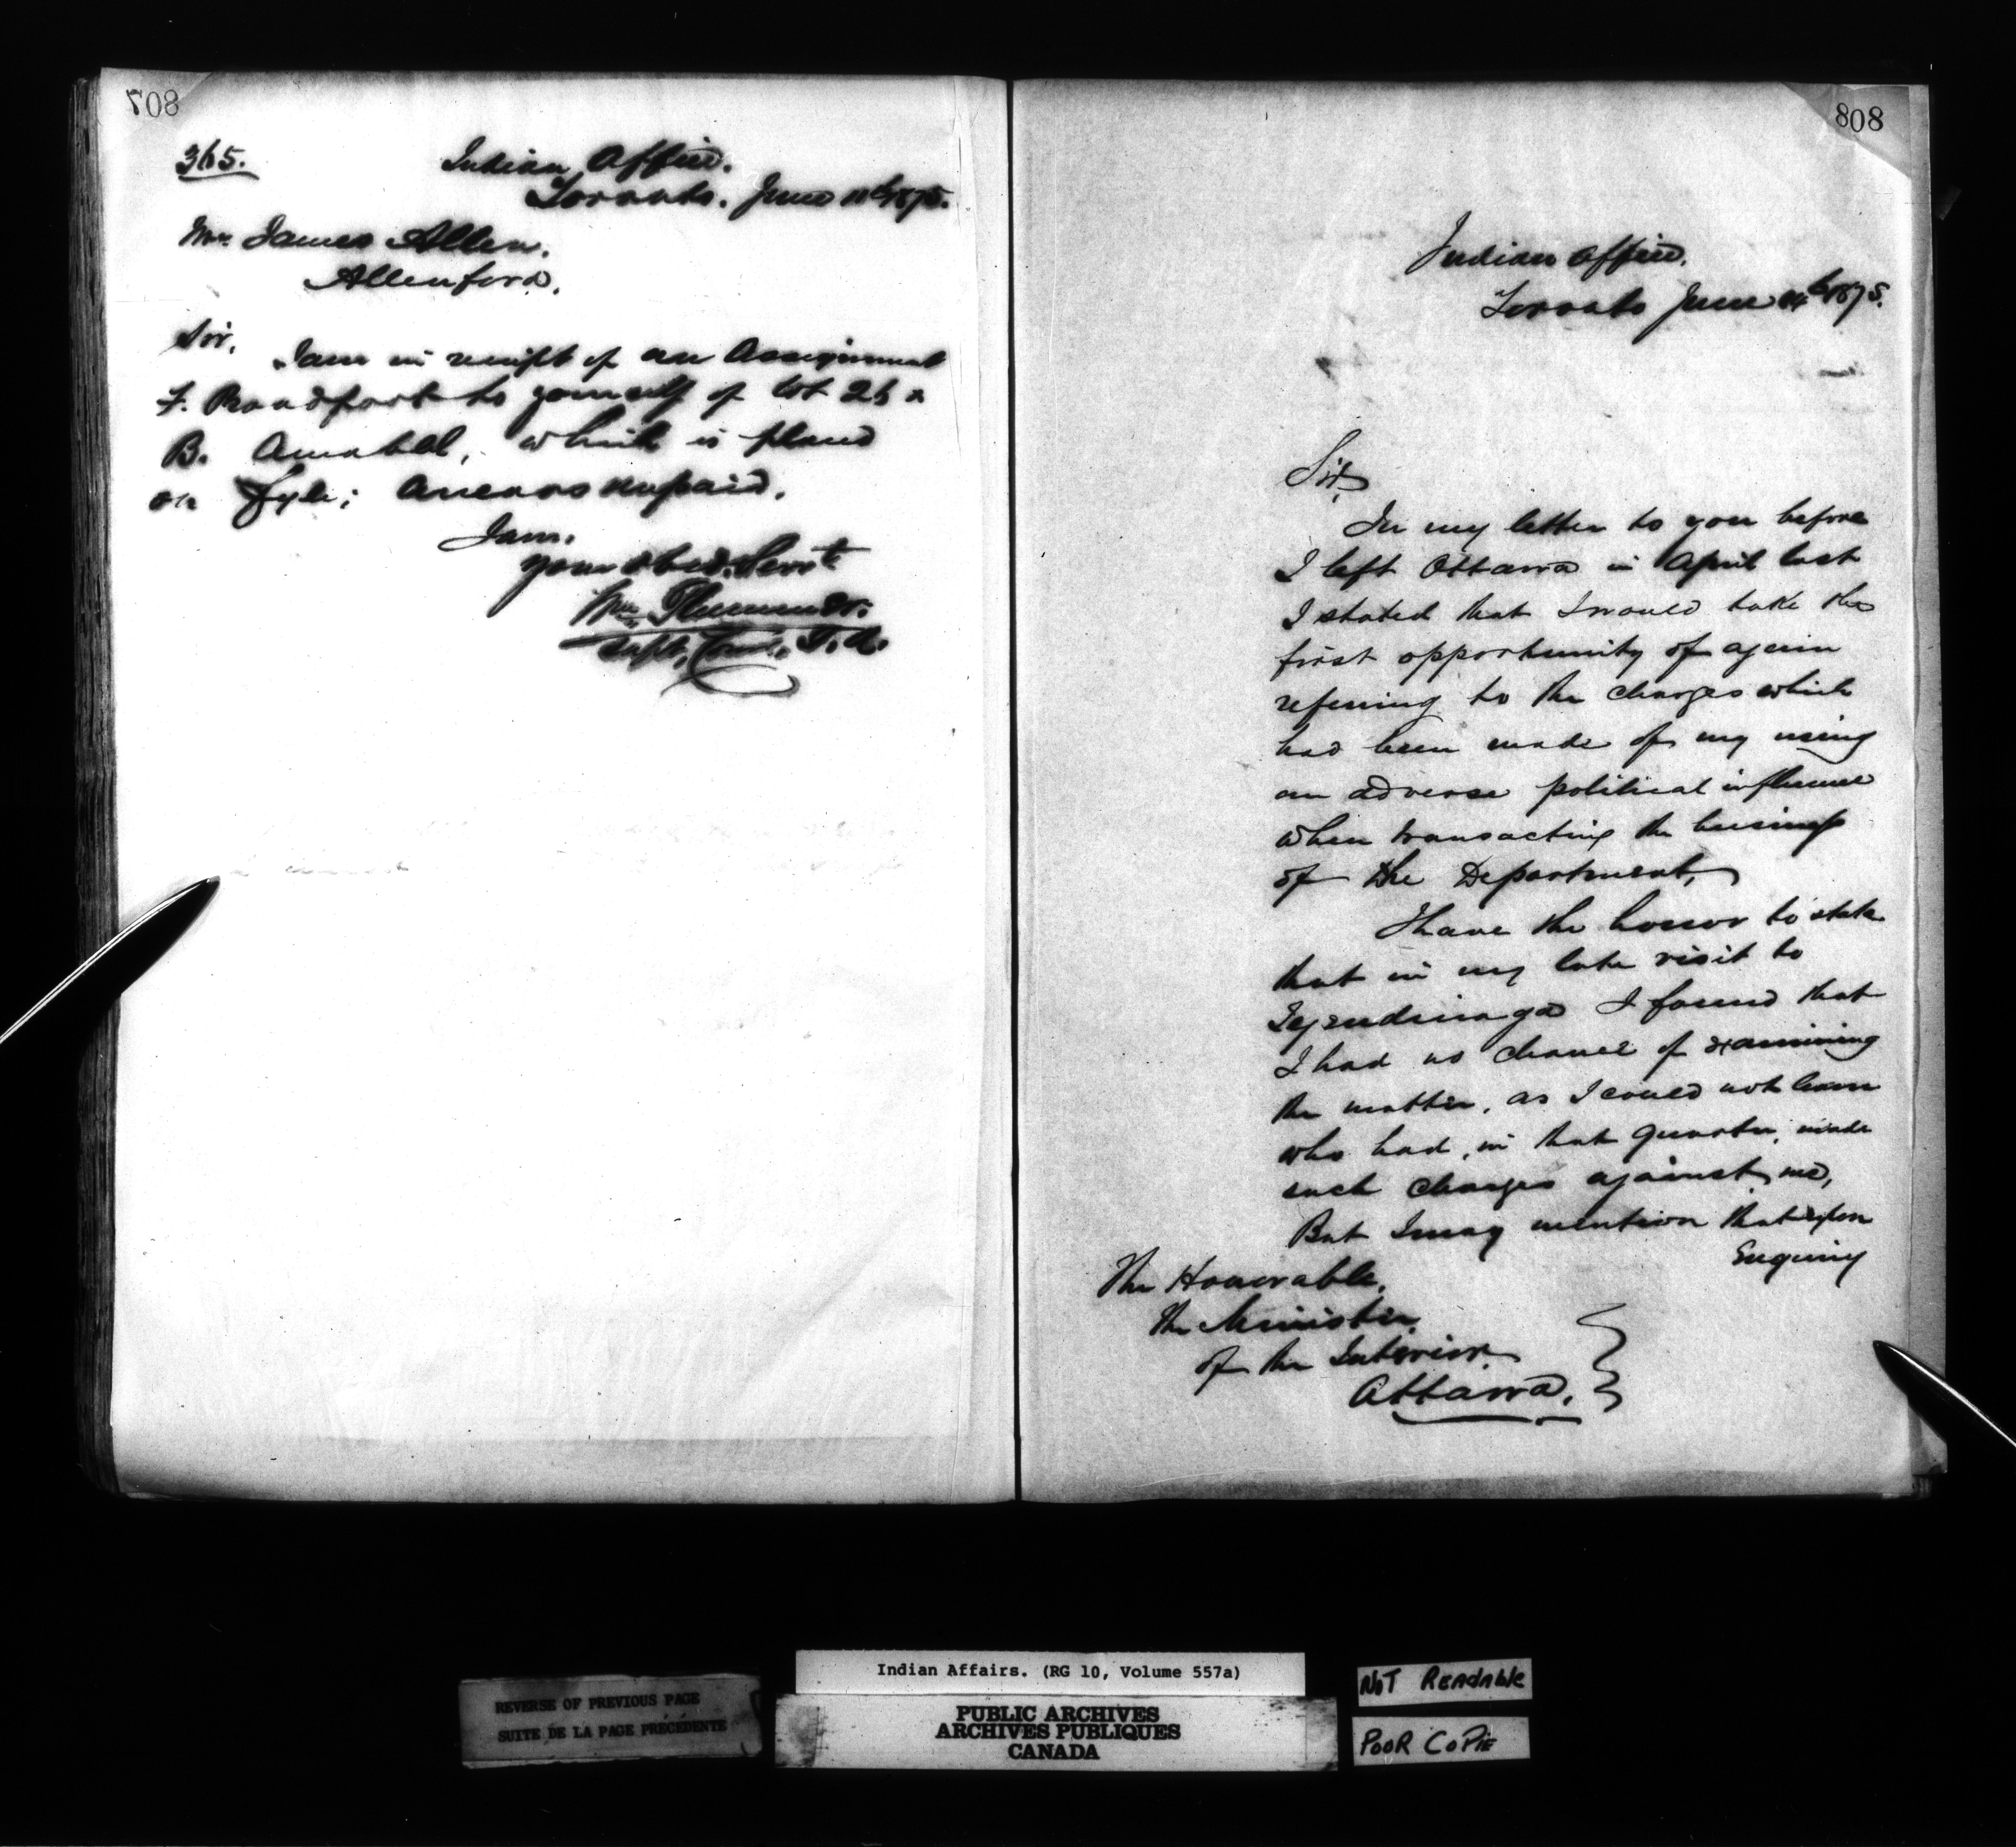 807
365.
Indian Office.
Toronto. June 11th 1875.
Mr. James Allen.
Allenford.
Sir,
I am in receipt of an Assignment
F. to yourself of lot 26
B. Amabel, which is placed
on fyle; Arrears unpaid.
I am.
your obed. Servt
Wm. Plummer.
Supt. Com. I. A.
808
Indian Office.
Toronto June 14th 1875.
Sir,
In my letter to you before
I left Ottawa in April last
I stated that I would take the
first opportunity of again
refering to the charges which
had been made of my using
an adverse political influence
when transacting the business
of the Department,
I have the honor to state
that in my late visit to
Tyendinaga I found that
I had no chance of examining
the matter, as I could not learn
who had, in that quarter, made
such charges against me,
But I may mention that upon
Enquiry
The Honorable,
The Minister
of the Interior
Ottawa.
REVERSE OF PREVIOUS PAGE
SUITE DE LA PAGE PRÉCÉDENTE
Indian Affairs. (RG 10, Volume 557a)
PUBLIC ARCHIVES
ARCHIVES PUBLIQUES
CANADA
NOT READABLE
POOR COPIE